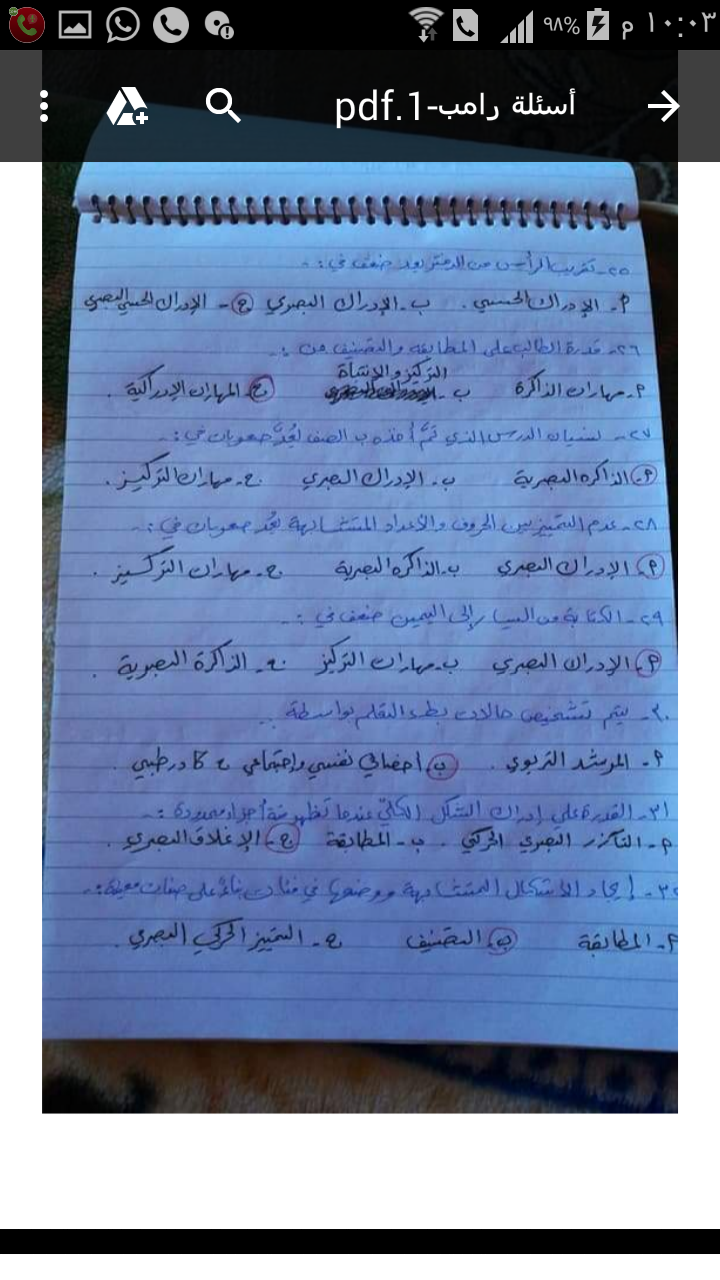 ١٠:٠٣ م
٩٨%
أسئلة رامب-1.pdf
٢٥- تقريب الرأس من الدفتر يعد ضعف في:-
أ- الإدراك الحسي. ب- الإدراك البصري ج- الإدراك الحسي البصري
٢٦- قدرة الطالب على المطابقة والتصنيف من :-
التركيز والإنتباه
أ- مهارات الذاكرة ب- ج- المهارات الإدراكية .
٢٧- نسيان الدرس الذي تمَّ أخذه ب الصف يُعدَّ صعوبات في:-
أ- الذاكرة البصرية ب- الإدراك البصري ج- مهارات التركيز.
٢٨- عدم التمييز بين الحروف والأعداد المتشابهة يُعد صعوبات في:-
أ- الإدراك البصري ب- الذاكرة البصرية ج- مهارات التركيز .
٢٩- الكتابة من اليسار إلى اليمين ضعف في:-
أ- الإدراك البصري ب- مهارات التركيز ج- الذاكرة البصرية .
٣٠- يتم تشخيص حالات بطء التعلم بواسطة :-
أ- المرشد التربوي . ب- أخصائي نفسي وإجتماعي ج كادر طبي .
٣١- القدرة على إدراك الشكل الكلي عندما تظهر منه أجزاء محدودة:-
أ- التآزر البصري الحركي . ب- المطابقة ج- الإغلاق البصري .
٣٢- إيجاد الأشكال المتشابهة ووضعها في فئات بناءً على صفات معينة:-
أ- المطابقة ب- التصنيف ج- التمييز الحركي البصري .